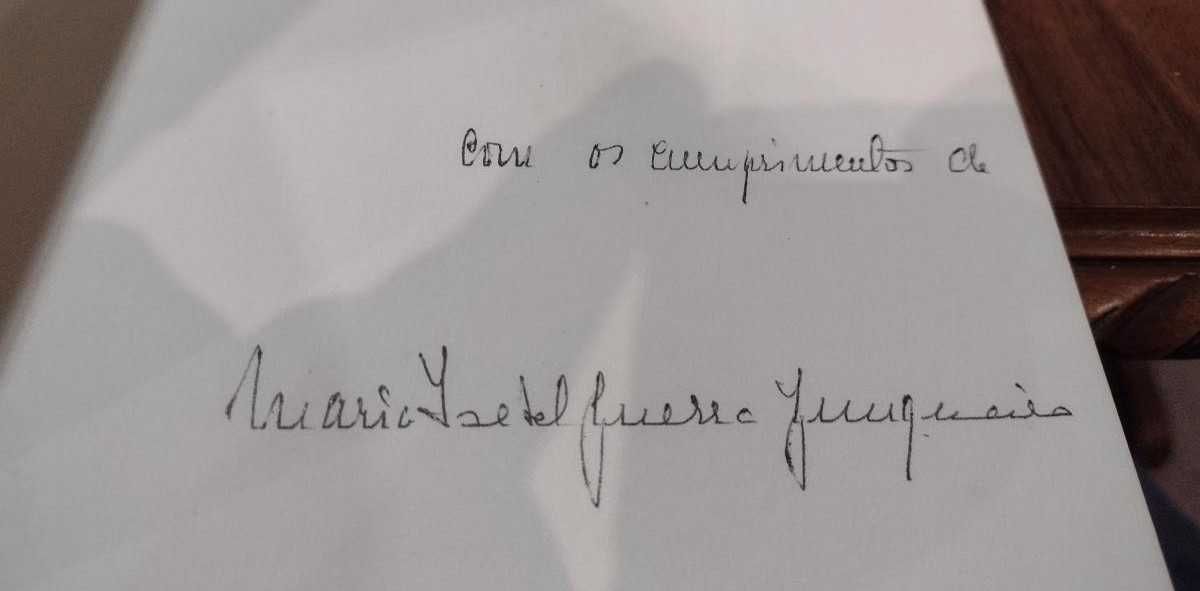 Com os cumprimentos de
Maria Isabel Guerra Junqueiro